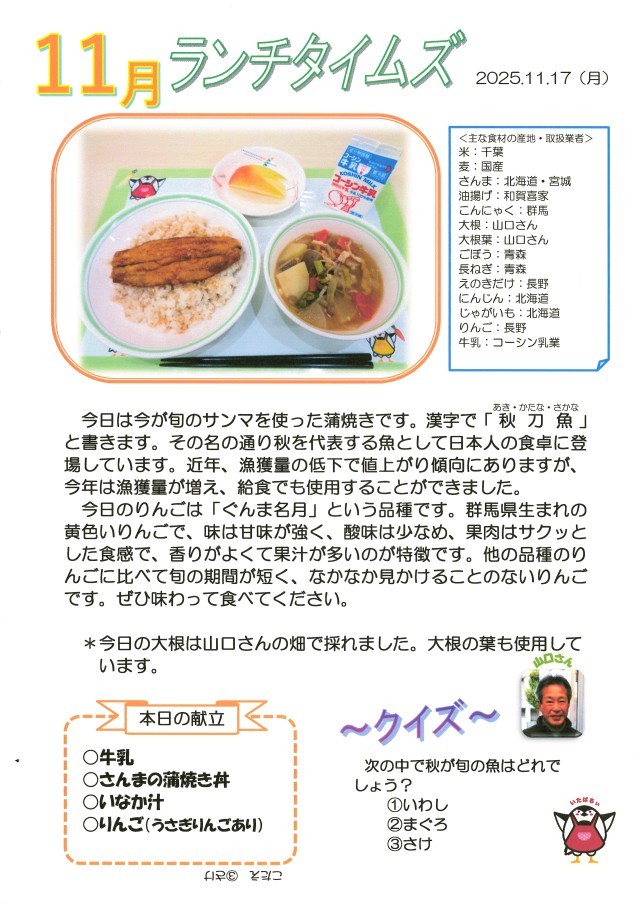 11月ランチタイムズ
2025.11.17（月）
＜主な食材の産地・取扱業者＞
米：千葉
麦：国産
さんま：北海道・宮城
油揚げ：和賀喜家
こんにゃく：群馬
大根：山口さん
大根葉：山口さん
ごぼう：青森
長ねぎ：青森
えのきだけ：長野
にんじん：北海道
じゃがいも：北海道
りんご：長野
牛乳：コーシン乳業
牛乳
KOSHIN MILK
コーシン牛乳
あき・かたな・さかな
今日は今が旬のサンマを使った蒲焼きです。漢字で「秋刀魚」
と書きます。その名の通り秋を代表する魚として日本人の食卓に登
場しています。近年、漁獲量の低下で値上がり傾向にありますが、
今年は漁獲量が増え、給食でも使用することができました。
今日のりんごは「ぐんま名月」という品種です。群馬県生まれの
黄色いりんごで、味は甘味が強く、酸味は少なめ、果肉はサクッと
した食感で、香りがよくて果汁が多いのが特徴です。他の品種のり
んごに比べて旬の期間が短く、なかなか見かけることのないりんご
です。ぜひ味わって食べてください。
＊今日の大根は山口さんの畑で採れました。大根の葉も使用して
います。
山口さん
本日の献立
○牛乳
○さんまの蒲焼き丼
○いなか汁
○りんご（うさぎりんごあり）
～クイズ～
次の中で秋が旬の魚はどれで
しょう？
①いわし
②まぐろ
③さけ
いたばちぃ
こたえ　③さけ